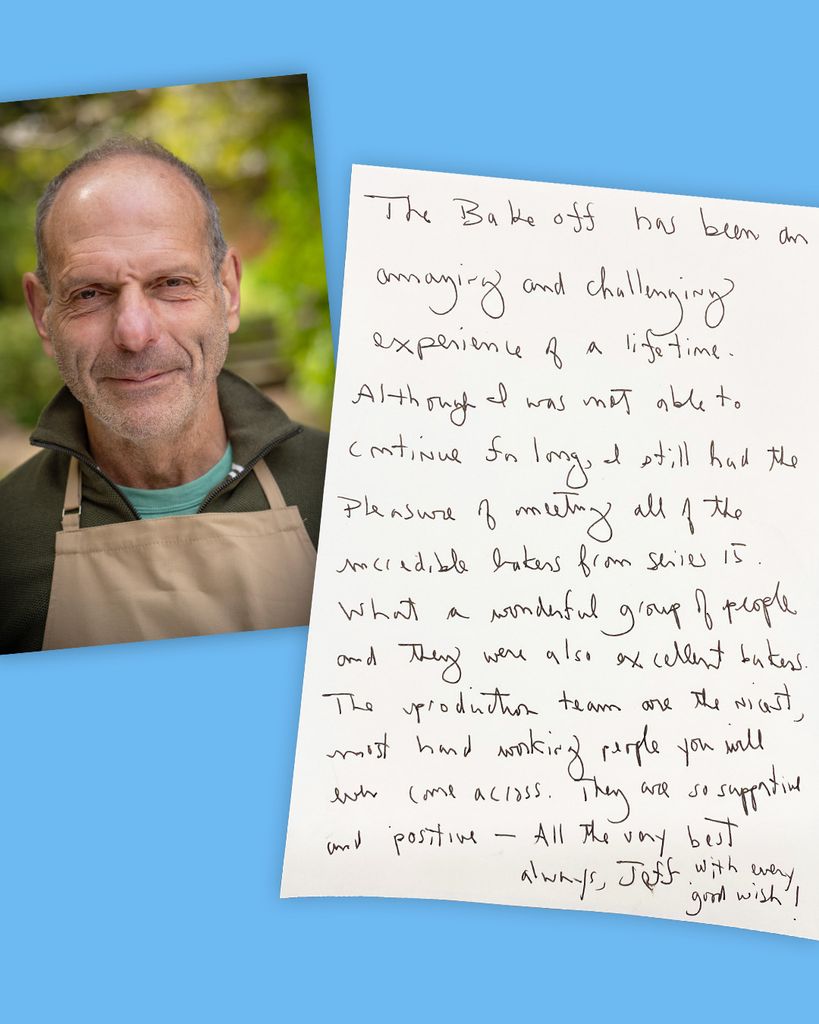 The Bake off has been an
amazing and challenging
experience of a lifetime.
Although I was not able to
continue for long, I still had the
pleasure of meeting all of the
incredible bakers from series 15.
What a wonderful group of people
and they were also excellent bakers.
The production team are the nicest,
most hard working people you will
ever come across. They are so supportive
and positive — All the very best
always, Jeff with every
good wish!